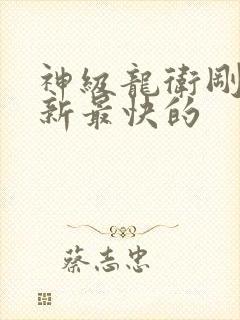 神級龍衛剛
新最快的
蔡志忠